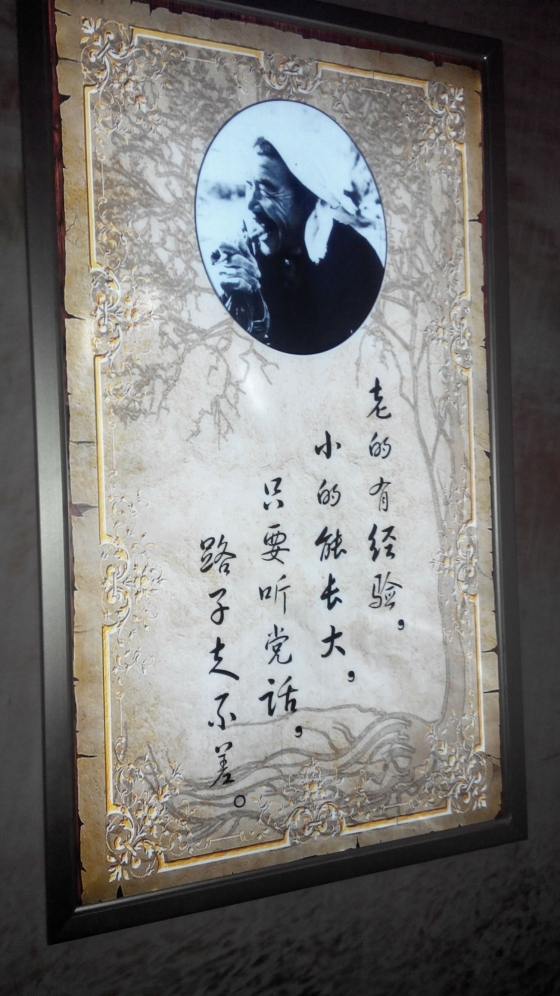 老的有经验，
小的能长大，
只要听党话，
路子走不差。